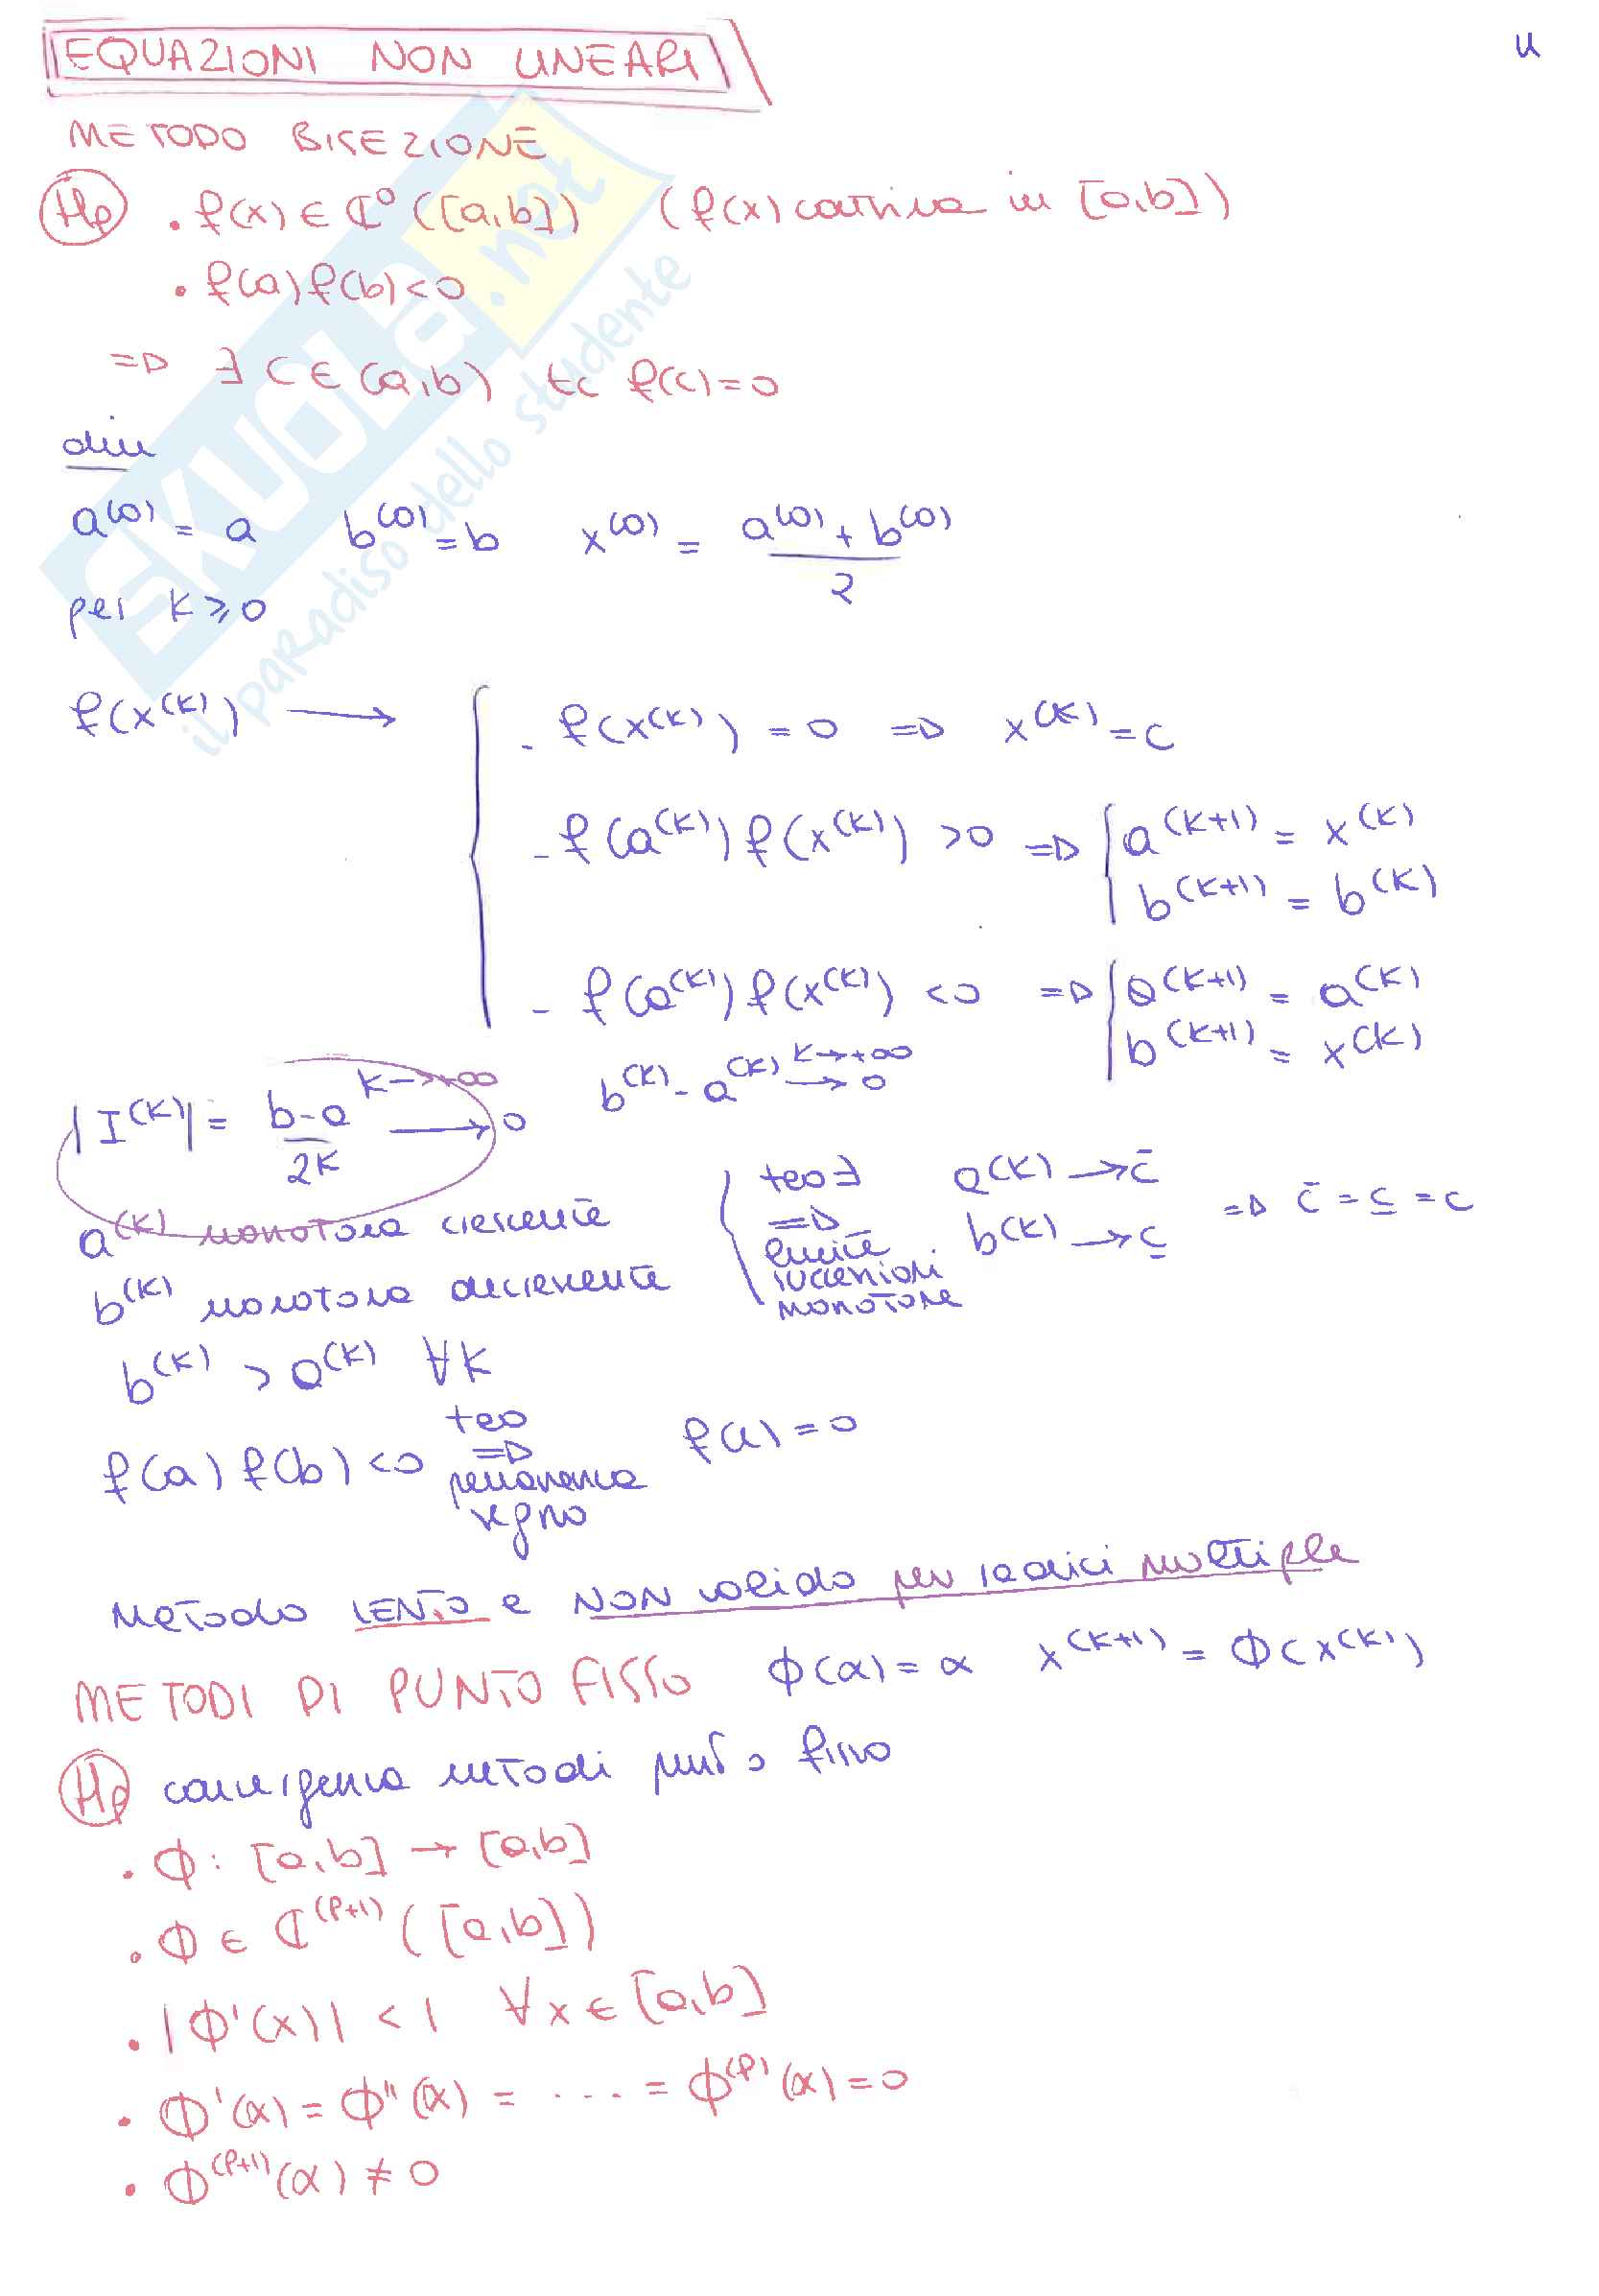 EQUAZIONI NON LINEARI
METODO BISEZIONE
Hp • f(x) ∈ C⁰([a,b]) (f(x) continua in [a,b])
• f(a)f(b)<0
=> ∃ c ∈ (a,b) tc f(c)=0
dim
a^(0) = a b^(0) = b x^(0) = (a^(0) + b^(0))/2
per k ≥ 0
f(x^(k)) → { - f(x^(k)) = 0 => x^(k) = c
- f(a^(k)) f(x^(k)) > 0 => { a^(k+1) = x^(k)
b^(k+1) = b^(k)
- f(a^(k)) f(x^(k)) < 0 => { a^(k+1) = a^(k)
b^(k+1) = x^(k)
|I^(k)| = (b-a)/2k →^(k→+∞) 0 b^(k) - a^(k) →^(k→+∞) 0
a^(k) monotona crescente
b^(k) monotona decrescente
{ teo ∃ => limite successioni monotone
a^(k) → c̄
b^(k) → c̲ => c̄ = c̲ = c
b^(k) > a^(k) ∀k
f(a) f(b) < 0 teo => permanenza segno f(c) = 0
Metodo LENTO e NON valido per radici multiple
METODI DI PUNTO FISSO ϕ(α) = α x^(k+1) = ϕ(x^(k))
Hp convergenza metodi punto fisso
• ϕ: [a,b] → [a,b]
• ϕ ∈ C^(p+1) ([a,b])
• |ϕ'(x)| < 1 ∀x ∈ [a,b]
• ϕ'(α) = ϕ''(α) = .... = ϕ^(p)(α) = 0
• ϕ^(p+1)(α) ≠ 0
SKUOLA.net
il paradiso dello studente